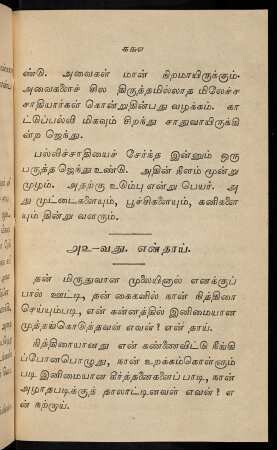 ககள
ண்டு. அவைகள் மான் கிறமாயிருக்கும்.
அவைகளைச் சில திருத்தமில்லாத மிலேச்ச
சாதியார்கள் கொன்றுதின்பது வழக்கம். கா
ட்டுப்பல்லி மிகவும் சிறந்து சாதுவாயிருக்கி
ன்ற ஜெந்து.
பல்லிச்சாதியைச் சேர்ந்த இன்னும் ஒரு
பருத்த ஜெந்து உண்டு. அதின் நீளம் மூன்று
முழம். அதற்கு உடும்பு என்று பெயர். அ
து முட்டைகளையும், பூச்சிகளையும், கனிகளை
யும் தின்று வளரும்.
அ௨-வது. என்தாய்.
தன் மிருதுவான முலையினால் எனக்குப்
பால் ஊட்டி, தன் கைகளில் நான் நித்திரை
செய்யும்படி, என் கன்னத்தில் இனிமையான
முத்தங்கொடுத்தவள் எவள்? என் தாய்.
நித்திரையானது என் கண்ணைவிட்டு நீங்கி
ப்போனபொழுது, நான் உறக்கங்கொள்ளும்
படி இனிமையான கீர்த்தனைகளைப் பாடி, நான்
அழாதபடிக்குத் தாலாட்டினவள் எவள்? எ
ன் தாய்.